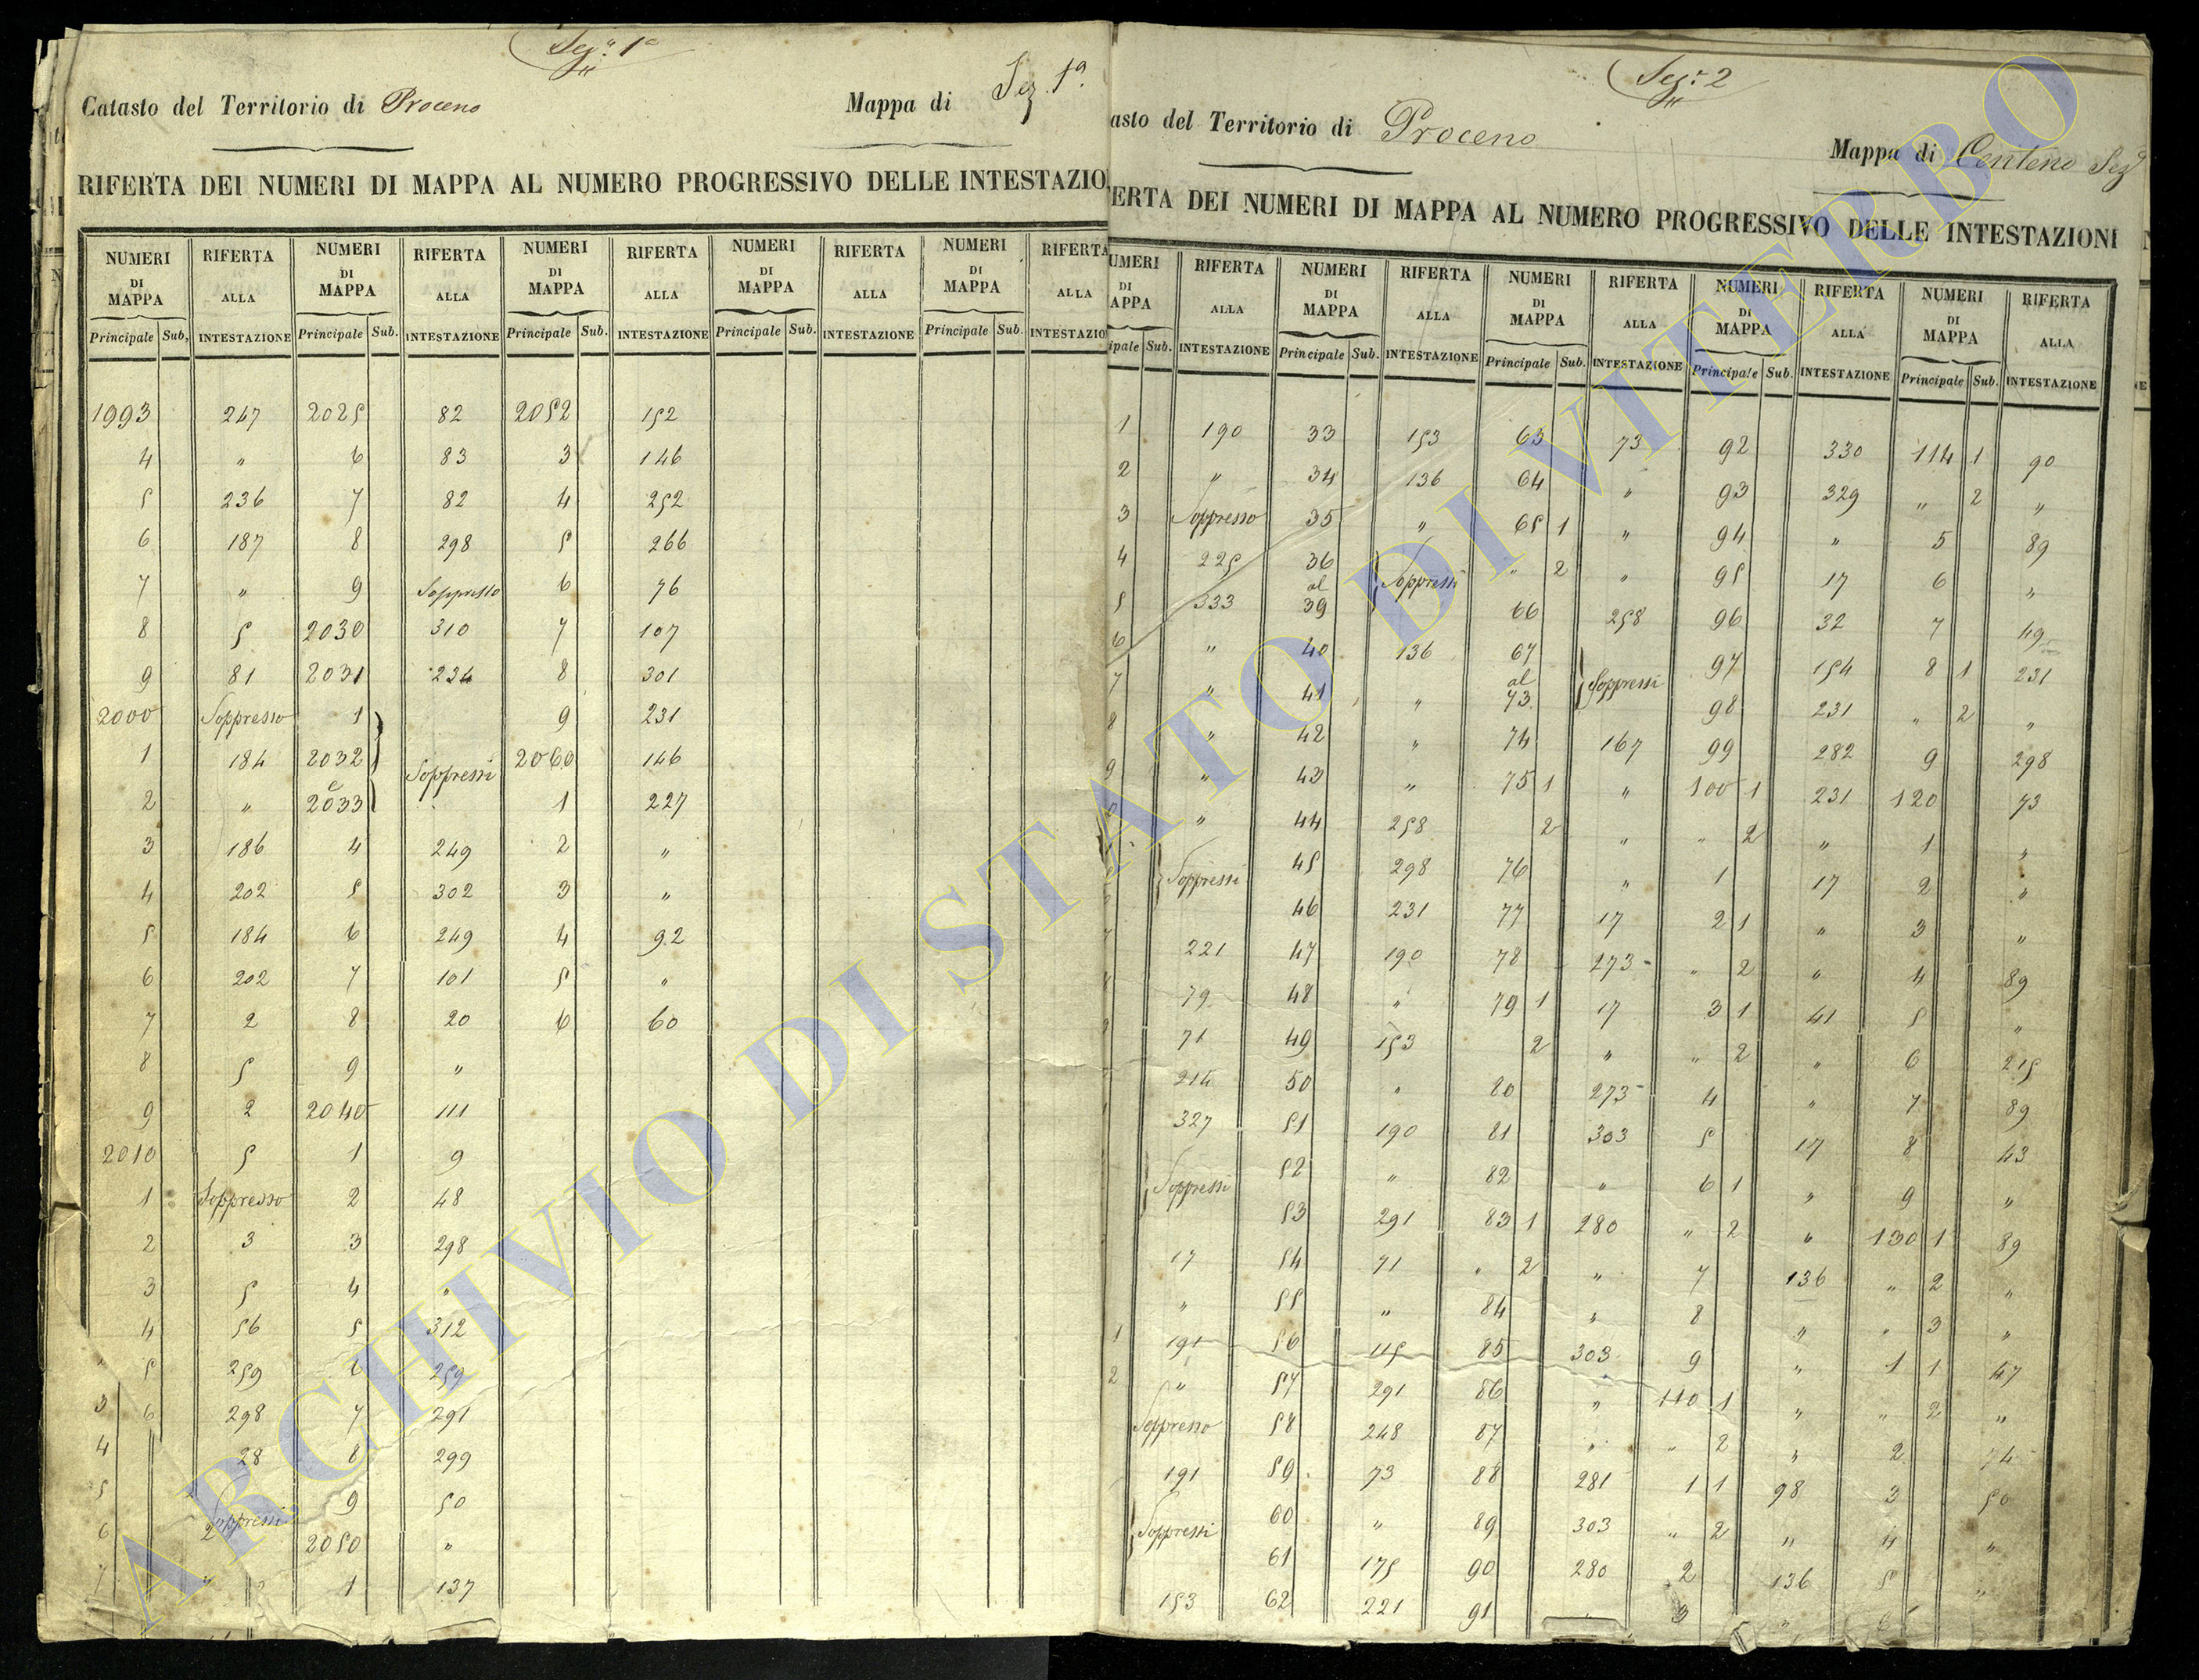 Sez.ª 1ª
Catasto del Territorio di Proceno
Mappa di Sez. 1ª
RIFERTA DEI NUMERI DI MAPPA AL NUMERO PROGRESSIVO DELLE INTESTAZIO
NUMERI RIFERTA NUMERI RIFERTA NUMERI RIFERTA NUMERI RIFERTA NUMERI RIFERTA
DI DI DI DI DI
MAPPA ALLA MAPPA ALLA MAPPA ALLA MAPPA ALLA MAPPA ALLA
Principale Sub. INTESTAZIONE Principale Sub. INTESTAZIONE Principale Sub. INTESTAZIONE Principale Sub. INTESTAZIONE Principale Sub. INTESTAZIO
1993 247 2025 82 2052 152
4 " 6 83 3 146
5 236 7 82 4 252
6 187 8 298 5 266
7 " 9 Soppresso 6 76
8 5 2030 310 7 107
9 81 2031 234 8 301
2000 Soppresso 1 9 231
1 184 2032 Soppressi 2060 146
2 " e 2033 1 227
3 186 4 249 2 "
4 202 5 302 3 "
5 184 6 249 4 92
6 202 7 101 5 "
7 2 8 20 6 60
8 5 9 "
9 2 2040 111
2010 5 1 9
1 Soppresso 2 48
2 3 3 298
3 5 4 "
4 56 5 312
5 259 6 259
6 298 7 291
28 8 299
9 50
Soppressi 2050 "
1 137
Sez.e 2
asto del Territorio di Proceno
Mappa di Centeno Sez
ERTA DEI NUMERI DI MAPPA AL NUMERO PROGRESSIVO DELLE INTESTAZIONI
UMERI RIFERTA NUMERI RIFERTA NUMERI RIFERTA NUMERI RIFERTA NUMERI RIFERTA
DI DI DI DI DI
APPA ALLA MAPPA ALLA MAPPA ALLA MAPPA ALLA MAPPA ALLA
ipale Sub. INTESTAZIONE Principale Sub. INTESTAZIONE Principale Sub. INTESTAZIONE Principale Sub. INTESTAZIONE Principale Sub. INTESTAZIONE
1 190 33 153 63 73 92 330 114 1 90
2 " 34 136 64 " 93 329 " 2 "
3 Soppresso 35 " 65 1 " 94 " 5 89
4 225 36 Soppressi " 2 " 95 17 6 "
5 333 al 39 66 258 96 32 7 49
6 " 40 136 67 Soppressi 97 154 8 1 231
7 " 41 " al 73 98 231 " 2 "
8 " 42 " 74 167 99 282 9 298
9 " 43 " 75 1 " 100 1 231 120 73
" 44 258 2 " " 2 " 1 "
Soppressi 45 298 76 " 1 17 2 "
46 231 77 17 2 1 " 3 "
221 47 190 78 273 " 2 " 4 89
79 48 " 79 1 17 3 1 41 5 "
71 49 153 2 " " 2 " 6 215
214 50 " 80 273 4 " 7 89
327 51 190 81 303 5 17 8 43
Soppressi 52 " 82 " 6 1 " 9 "
53 291 83 1 280 " 2 " 130 1 89
17 54 71 " 2 " 7 136 " 2 "
" 55 " 84 " 8 " " 3 "
1 191 56 115 85 303 9 " 1 1 47
2 " 57 291 86 " 110 1 " " 2 "
Soppresso 58 248 87 " " 2 " 2 74
191 59 73 88 281 1 1 98 3 50
Soppressi 60 " 89 303 " 2 " 4 "
61 175 90 280 2 136 5 "
153 62 221 91 " 3 "
ARCHIVIO DI STATO DI VITERBO